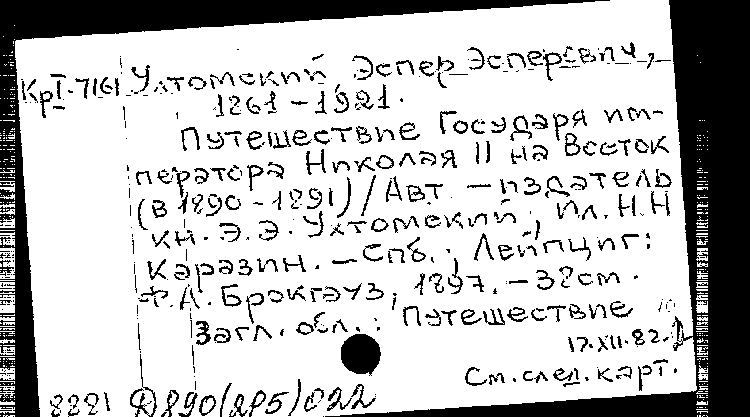 КрI-7161 Ухтомский, Эспер Эсперович,
1861-1921.
Путешествие Государя им-
ператора Николая II на Восток
(в 1890-1891) / Авт. - издатель
кн. Э.Э. Ухтомский; Ил. Н.Н
Каразин. - Спб.; Лейпциг:
Ф.А. Брокгауз, 1897. - 38см.
Загл. обл.: Путешествие
17.XII.82.
См. след. карт.
8281 Д890(2Р5)022